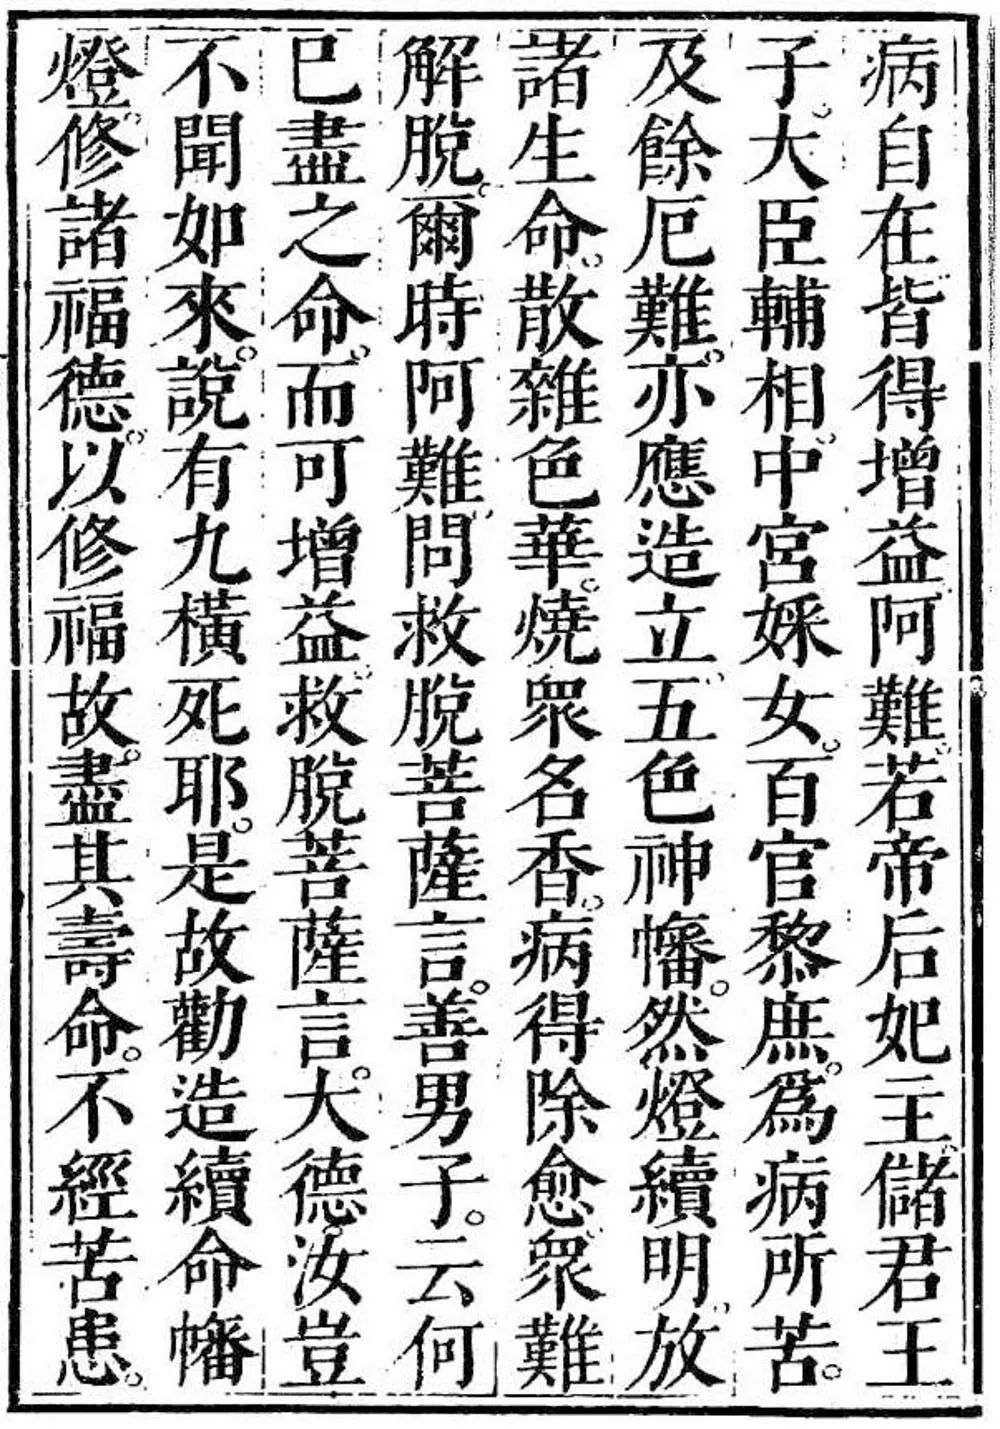 病自在皆得增益阿難若帝后妃主儲君王
子。大臣輔相中宮婇女。百官黎庶。爲病所苦。
及餘厄難。亦應造立五色神幡。然燈續明放
諸生命。散雜色華。燒眾名香。病得除愈眾難
解脫。爾時阿難問救脫菩薩言。善男子。云何
已盡之命。而可增益。救脫菩薩言。大德。汝豈
不聞如來。說有九橫死耶。是故勸造續命幡
燈。修諸福德。以修福故。盡其壽命。不經苦患。